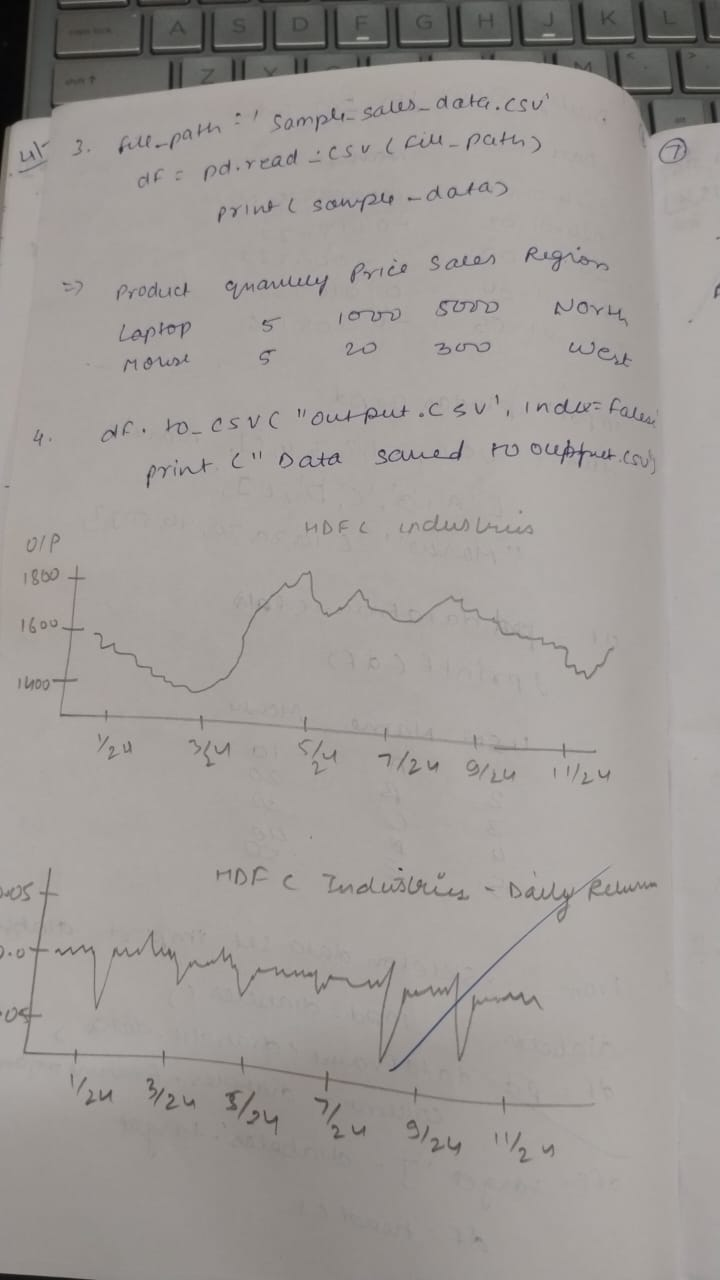 4)
3. file_path = 'Sample_sales_data.csv'
df = pd.read_csv (file_path)
print ( sample_data)
=> Product quantity Price Sales Region
Laptop 5 1000 5000 North
Mouse 5 20 300 West
4. df. to_csv( "output.csv", index=False
print (" Data saved to output.csv")
HDFC industries
O/P
1800
1600
1400
1/24 3/24 5/24 7/24 9/24 11/24
HDFC Industries - Daily Return
0.05
0.0
05
1/24 3/24 5/24 7/24 9/24 11/24
7